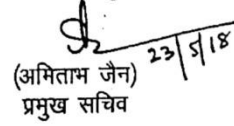 23/5/18
(अमिताभ जैन)
प्रमुख सचिव